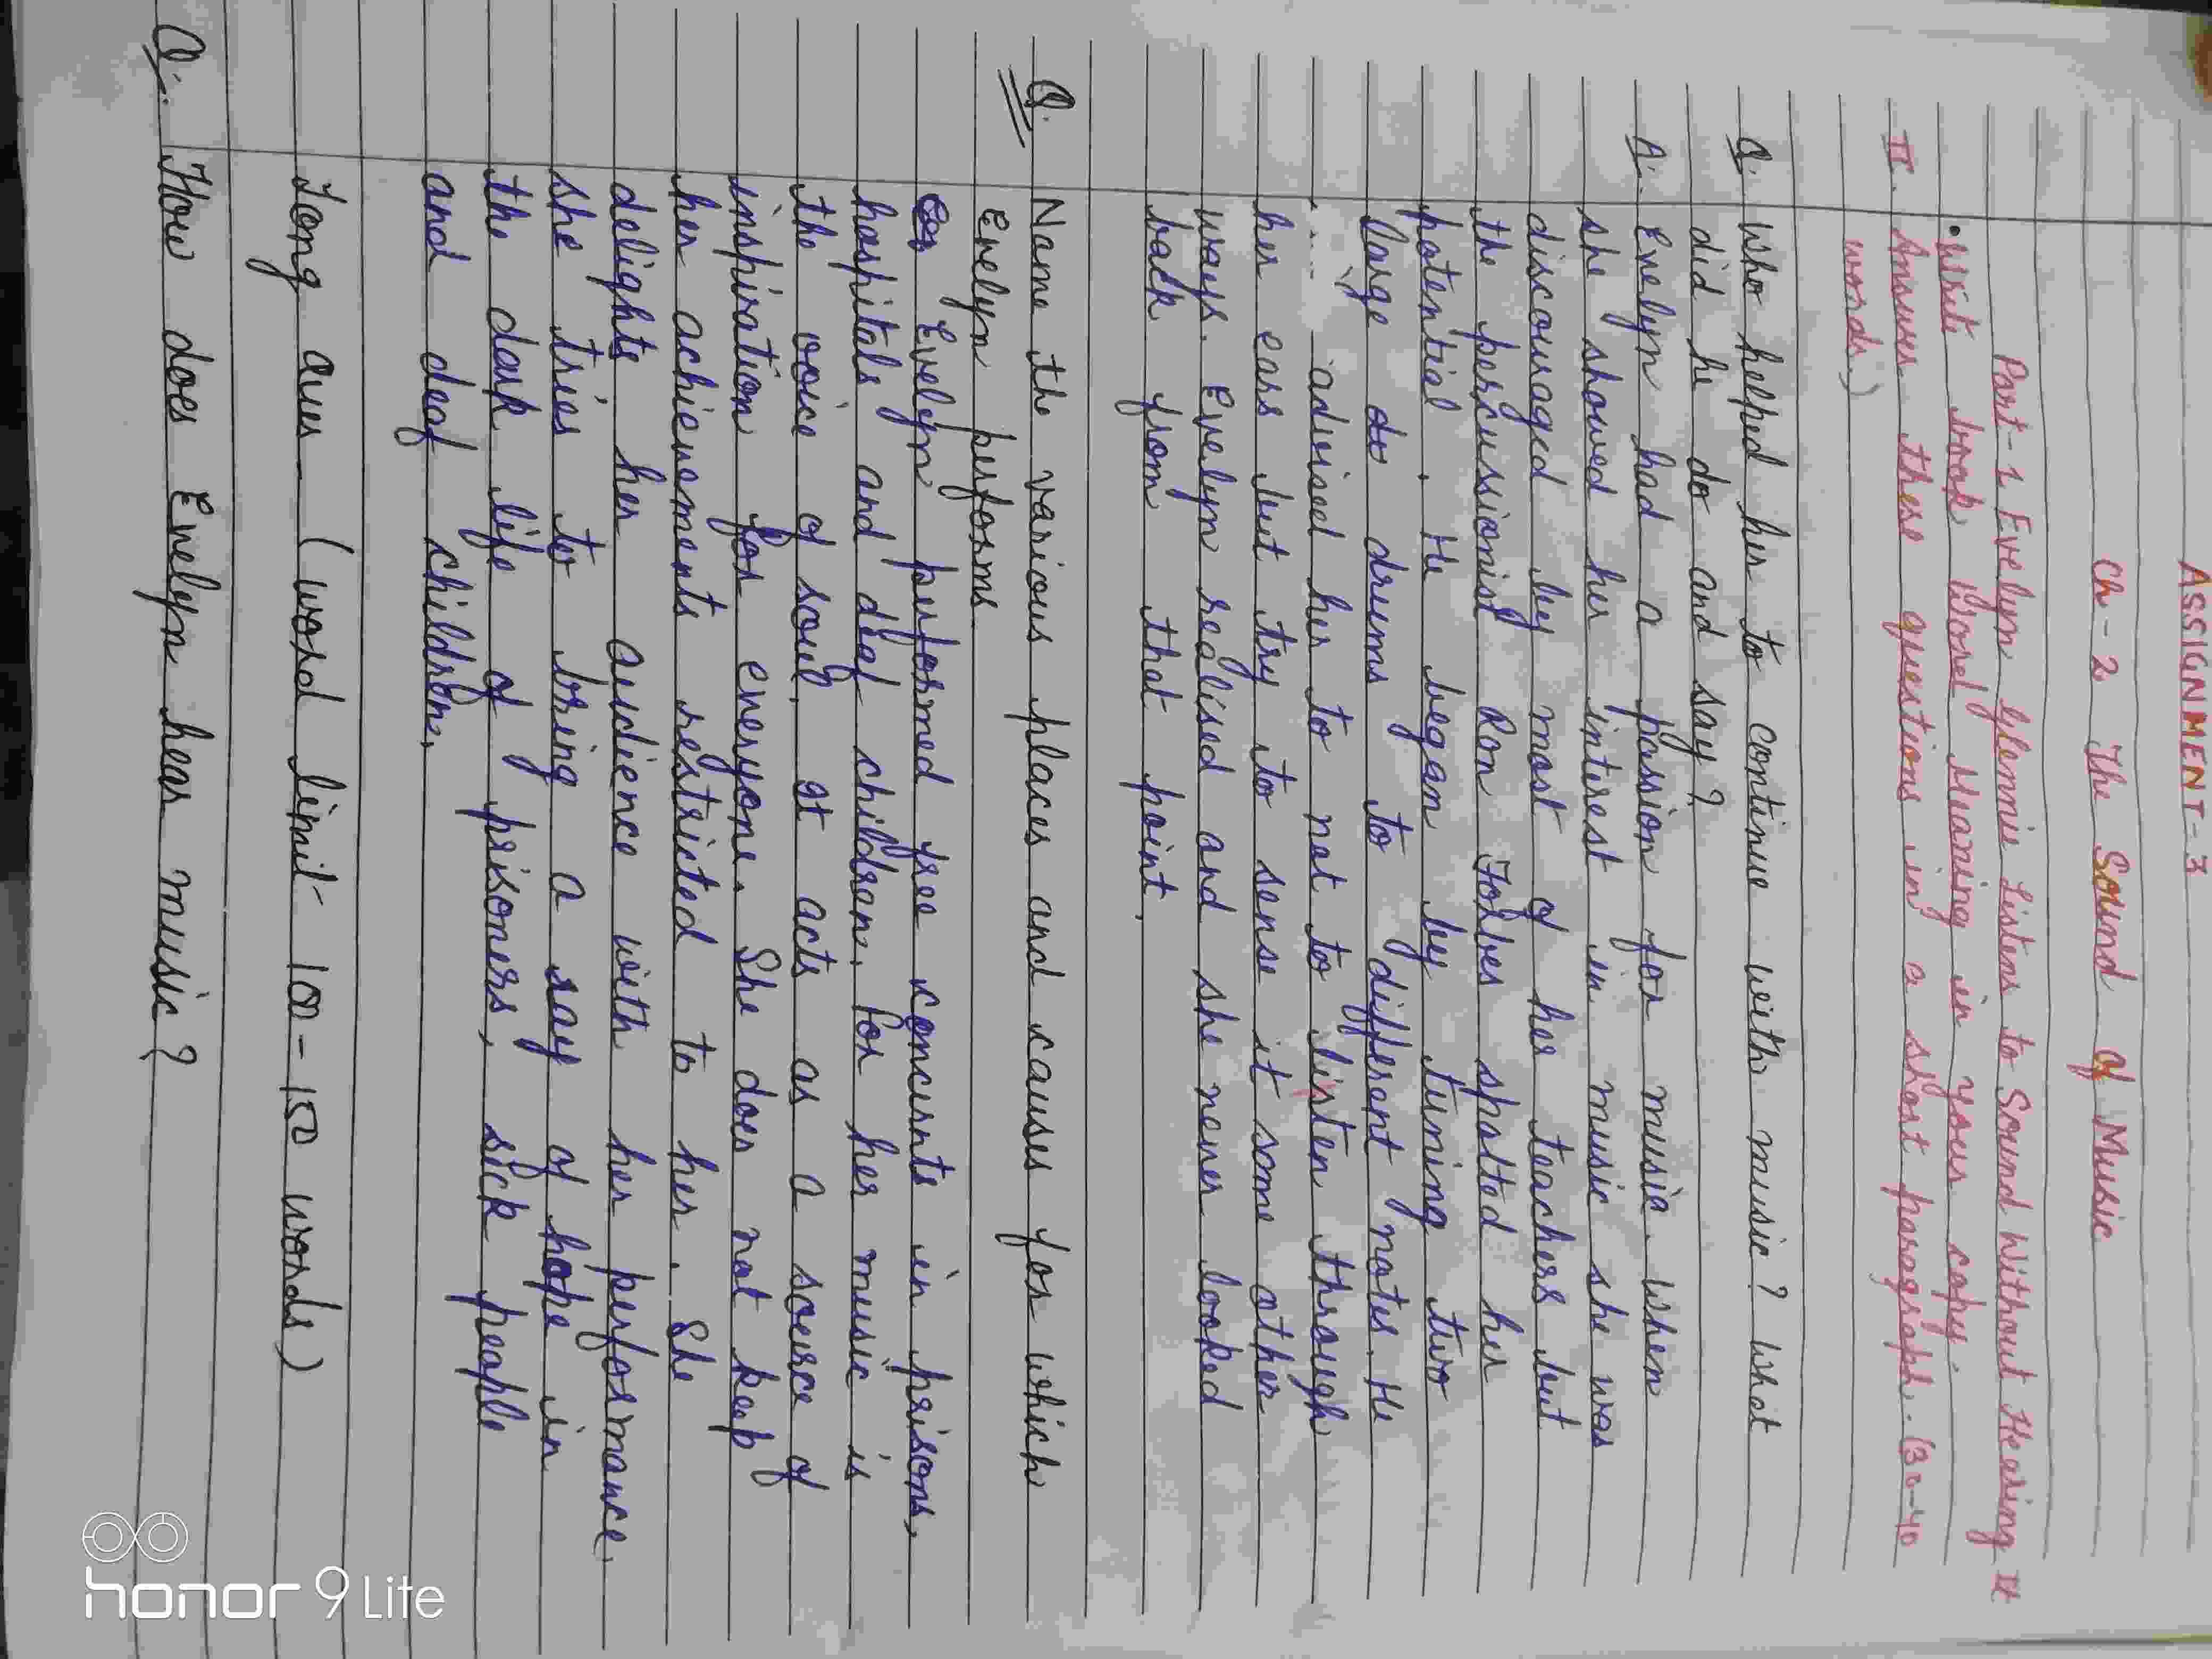 ASSIGNMENT-3
Ch-2 The Sound of Music
Part-1 Evelyn Glennie Listens to Sound Without Hearing It
• Write book Word Meaning in your copy.
II. Answer these questions in a short paragraph. (30-40
words.)
Q. Who helped her to continue with music? What
did he do and say?
A. Evelyn had a passion for music. When
she showed her interest in music she was
discouraged by most of her teachers but
the percussionist Ron Forbes spotted her
potential. He began by tuning two
large dr drums to different notes. He
advised her to not to listen through
her ears but try to sense it some other
ways. Evelyn realised and she never looked
back from that point.
Q. Name the various places and causes for which
Evelyn performs.
Evelyn performed free concerts in prisons,
hospitals and deaf children. For her music is
the voice of soul. It acts as a source of
inspiration for everyone. She does not keep
her achievements restricted to her. She
delights her audience with her performance.
she tries to bring a ray of hope in
the dark life of prisoners, sick people
and deaf children.
Long ques (word limit 100-150 words)
Q. How does Evelyn hear music?
honor 9 Lite